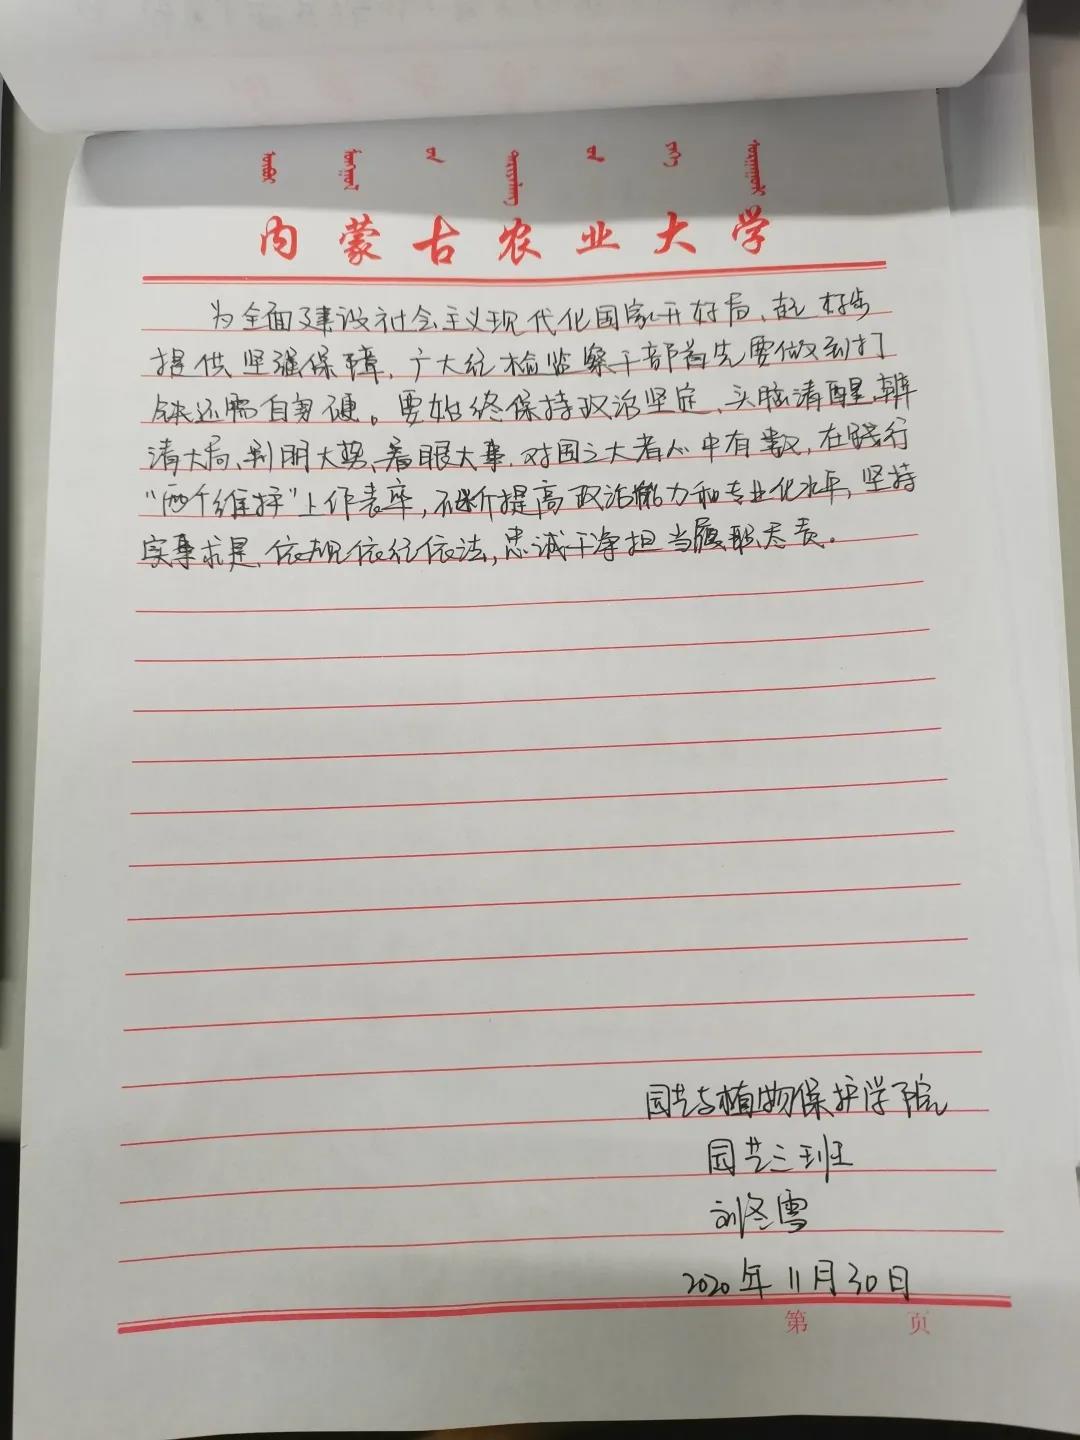 内蒙古农业大学
为全面建设社会主义现代化国家开好局、起好步
提供坚强保障,广大纪检监察干部首先要做到打
铁还需自身硬。要始终保持政治坚定、头脑清醒、辨
清大局、判明大势、着眼大事,对国之大者心中有数,在践行
“两个维护”上作表率,不断提高政治能力和专业化水平,坚持
实事求是、依规依纪依法,忠诚干净担当履职尽责。
园艺与植物保护学院
园艺三班
刘冬雪
2020年11月30日
第 页